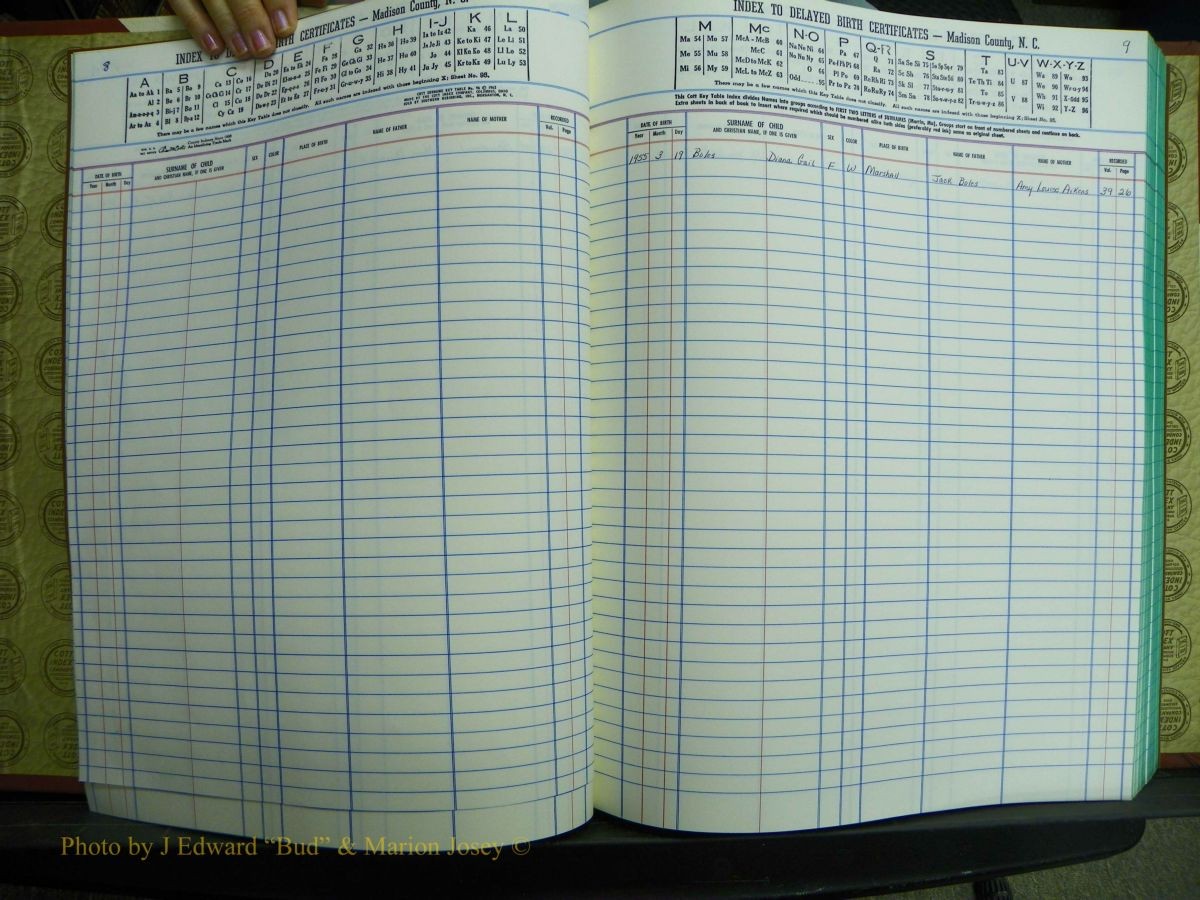 8
INDEX TO DELAYED BIRTH CERTIFICATES — Madison County, N. C.
A B C D E F G H I-J K L
Aa to Ak 1
Al 2
Ar to Az 4
Ba 5
Be 6
Bi-j-l 7
Bl 8
Bo 9
Br 10
Bu 11
Ca 13
Cl 15
Cr 16
Cu 18
Cy Cz 19
Da 20
Fa 28
Fe Fi 29
Fl Fo 30
Fr-u-y 31
Ga 32
Gl to Go 34
Gr-u-w-y 35
Ha 36
He 37
Hi 38
Ho 39
Hu 40
Hy 41
Ia to Iz 42
Ja Je Ji 43
Jo 44
Ju Jy 45
Ka 46
Ke to Ki 47
Kl Kn Ko 48
Kr to Kz 49
La 50
Le Li 51
Ll Lo 52
Lu Ly 53
There may be a few names which this Key Table does not classify. All such names are indexed with those beginning X; Sheet No. 95.
DATE OF BIRTH
Year Month Day
SURNAME OF CHILD
AND CHRISTIAN NAME, IF ONE IS GIVEN
SEX
COLOR
PLACE OF BIRTH
NAME OF FATHER
NAME OF MOTHER
RECORDED
Vol. Page
INDEX TO DELAYED BIRTH CERTIFICATES — Madison County, N. C.
9
M Mc N-O P Q-R S T U-V W-X-Y-Z
Ma 54 Mo 57
Me 55 Mu 58
Mi 56 My 59
McA - McB 60
McC 61
McD to McK 62
McL to McZ 63
Na Ne Ni 64
No Nu Ny 65
O 66
Odd 95
Pa 67
Pe Pf Ph Pi 68
Pl Po 69
Pr to Pz 70
Q 71
Ra 72
Re Rh Ri 73
Ro Ru Ry 74
Sa Se Si 75
Sc Sh 76
Sk Sl 77
Sm Sn 78
So Sp Sq Sr 79
Sta Ste Sti 80
Sto-r-u-y 81
Su-v-w-y-z 82
Ta 83
Te Th Ti 84
To 85
Tr-u-w-y-z 86
U 87
V 88
Wa 89
We 90
Wh 91
Wi 92
Wo 93
Wr-u-y 94
X-Odd 95
Y-Z 96
There may be a few names which this Key Table does not classify. All such names are indexed with those beginning X; Sheet No. 95.
This Cott Key Table Index divides Names into groups according to FIRST TWO LETTERS of SURNAMES (Martin, Ma). Groups start on front of numbered sheets and continue on back.
Extra sheets in back of book to insert where required which should be numbered alike both sides (preferably red ink) same as original sheet.
DATE OF BIRTH
Year Month Day
SURNAME OF CHILD
AND CHRISTIAN NAME, IF ONE IS GIVEN
SEX
COLOR
PLACE OF BIRTH
NAME OF FATHER
NAME OF MOTHER
RECORDED
Vol. Page
1955 3 17 Boles Diana Gail F W Marshall Jack Boles Amy Louise Aikens 39 26
Photo by J Edward “Bud” & Marion Josey ©